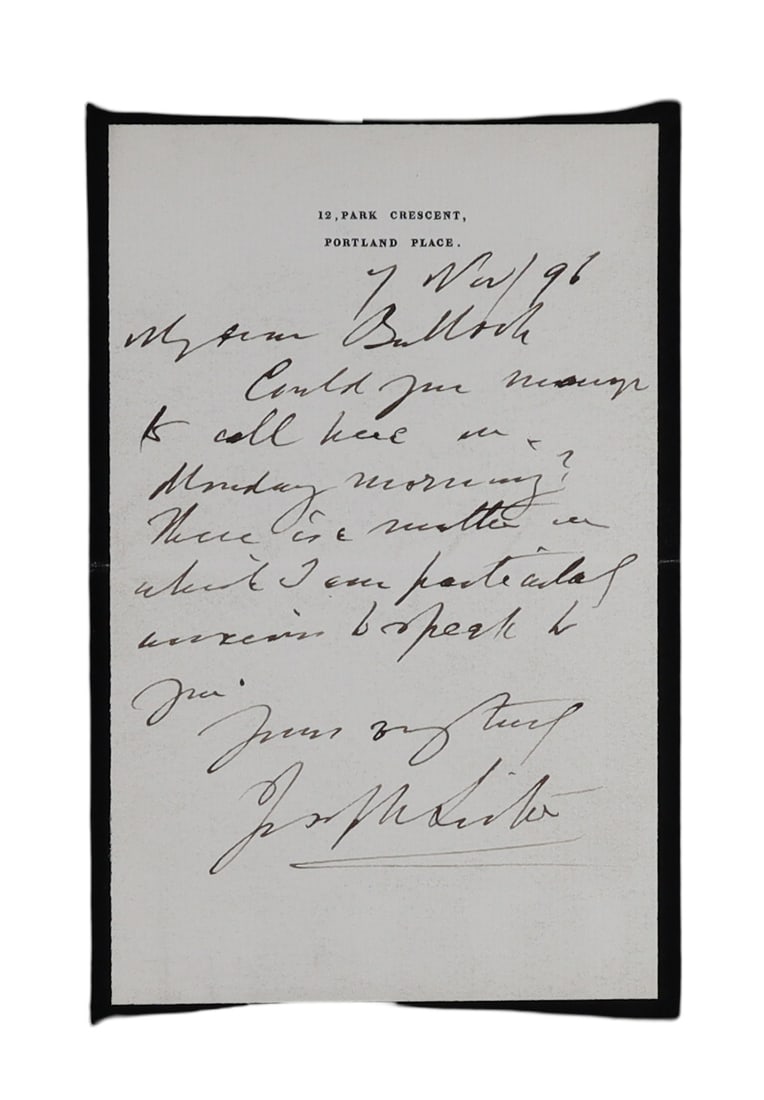 12, PARK CRESCENT,
PORTLAND PLACE.
7 Nov/96
My dear Bulloch
Could you manage
to call here on
Monday morning?
There is a matter on
which I am particularly
anxious to speak to
you.
Yours very truly
Joseph Lister